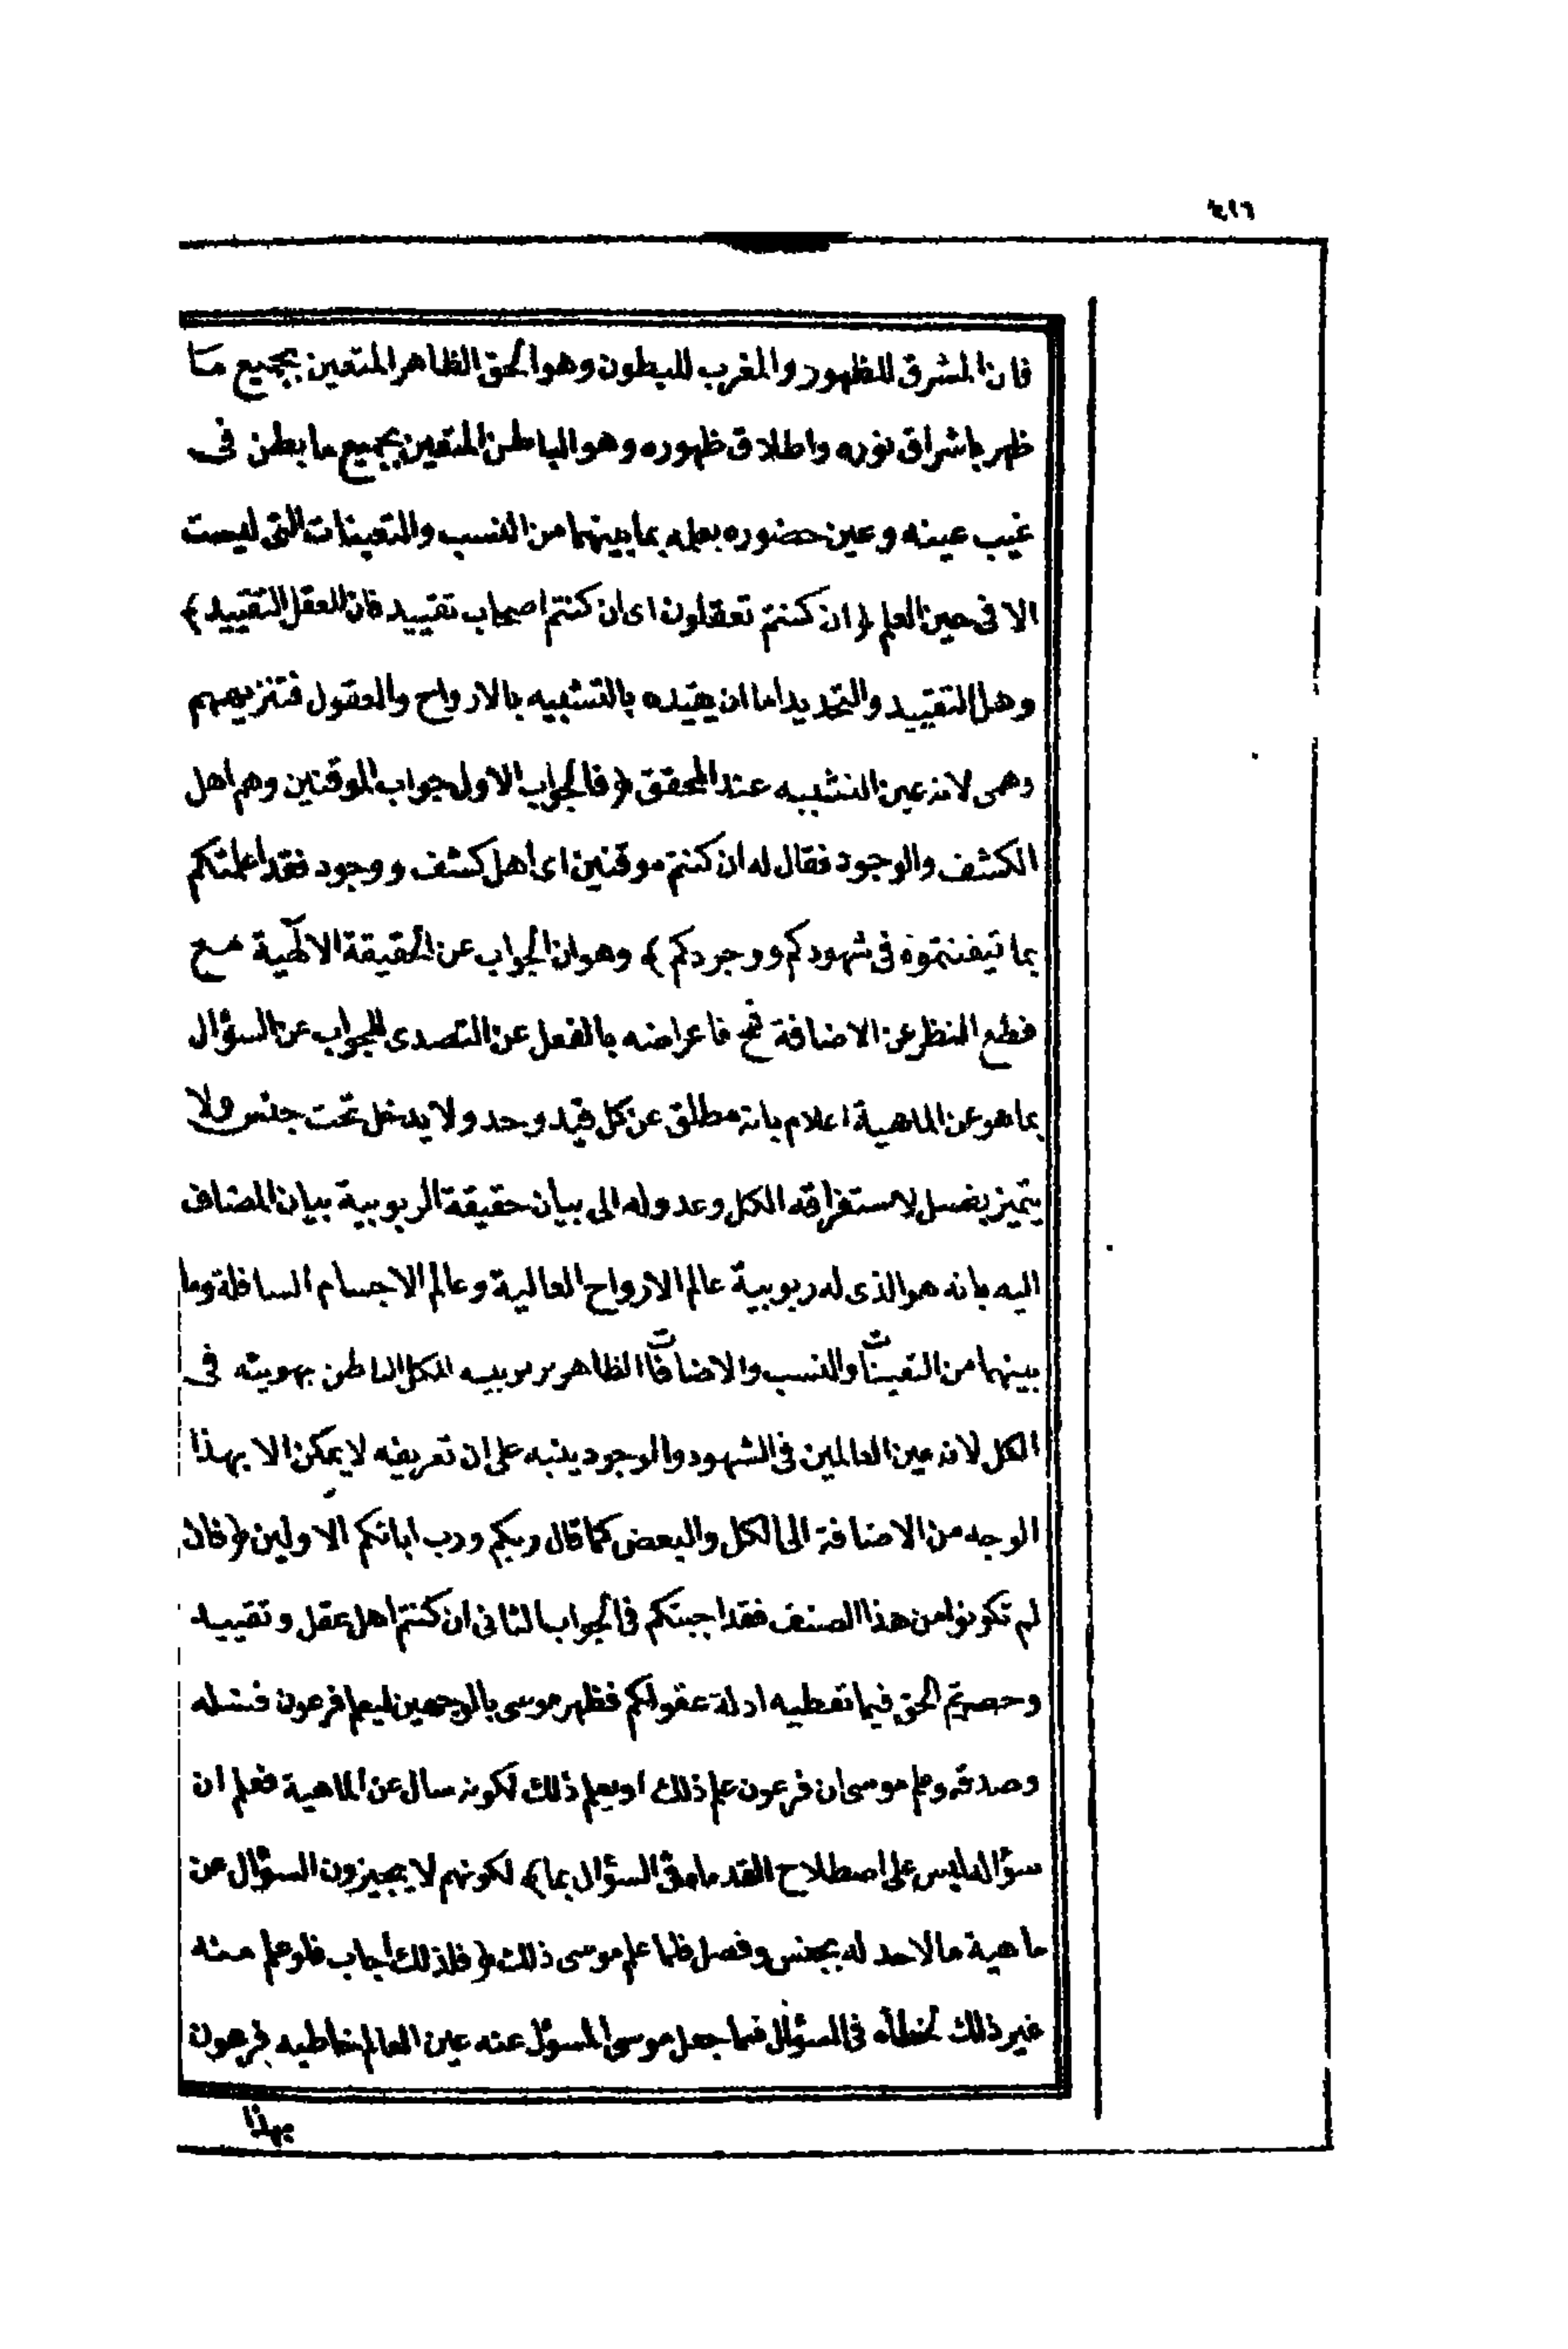 ٤١٦
فان المشرق للظهور والمغرب للبطون وهو الحق الظاهر المتعين بجميع ما
ظهر باشراق نوره واطلاق ظهوره وهو الباطن المتعين بجميع ما بطن فى
غيب عينه وعين حضوره بعلمه بما بينهما من النسب والتعينات التى ليست
الا فى حين العلم ﴿ان كنتم تعقلون اى ان كنتم اصحاب تقييد فان للعقل التقييد﴾
وهل التقييد والتحديد اما ان يقيده بالتشبيه بالارواح والعقول فتنزيههم
وهمى لانه عين التشبيه عند المحقق ﴿فالجواب الاول جواب الموقنين وهم اهل
الكشف والوجود فقال له ان كنتم موقنين اى اهل كشف ووجود فقد اعلمتكم
بما تيقنتموه فى شهودكم ووجودكم﴾ وهو ان الجواب عن الحقيقة الالهية مع
قطع النظر عن الاضافة مح فاعراضه بالفعل عن التصدى للجواب عن السؤال
بما هو عن الماهية اعلام بانه مطلق عن كل قيد وحد ولا يدخل تحت جنس ولا
يتميز بفصل لاستغراقه الكل وعدوله الى بيان حقيقة الربوبية بيان المضاف
اليه بانه هو الذى له ربوبية عالم الارواح العالية وعالم الاجسام السافلة وما
بينهما من التعينات والنسب والاضافات الظاهر بربوبيته للكل الباطن بهويته فى
الكل لانه عين العالمين فى الشهود والوجود ينبه على ان تعريفه لا يمكن الا بهذا
الوجه من الاضافة الى الكل والبعض كما قال ربكم ورب ابائكم الاولين ﴿فان
لم تكونوا من هذا الصنف فقد اجبتكم فى الجواب الثانى ان كنتم اهل عقل وتقييد
وحصرتم الحق فيما تعطيه ادلة عقولكم فظهر موسى بالوجهين ليعلم فرعون فضله
وصدقه وعلم موسى ان فرعون علم ذلك او يعلم ذلك لكونه سال عن الماهية فعلم ان
سؤاله ليس على اصطلاح القدماء فى السؤال بما﴾ لكونهم لا يجيزون السؤال عن
ماهية ما لا حد له بجنس وفصل فلما علم موسى ذلك ﴿فلذلك اجاب فلو علم منه
غير ذلك لخطأه فى السؤال فلما جعل موسى المسؤل عنه عين العالم خاطبه فرعون
بهذا